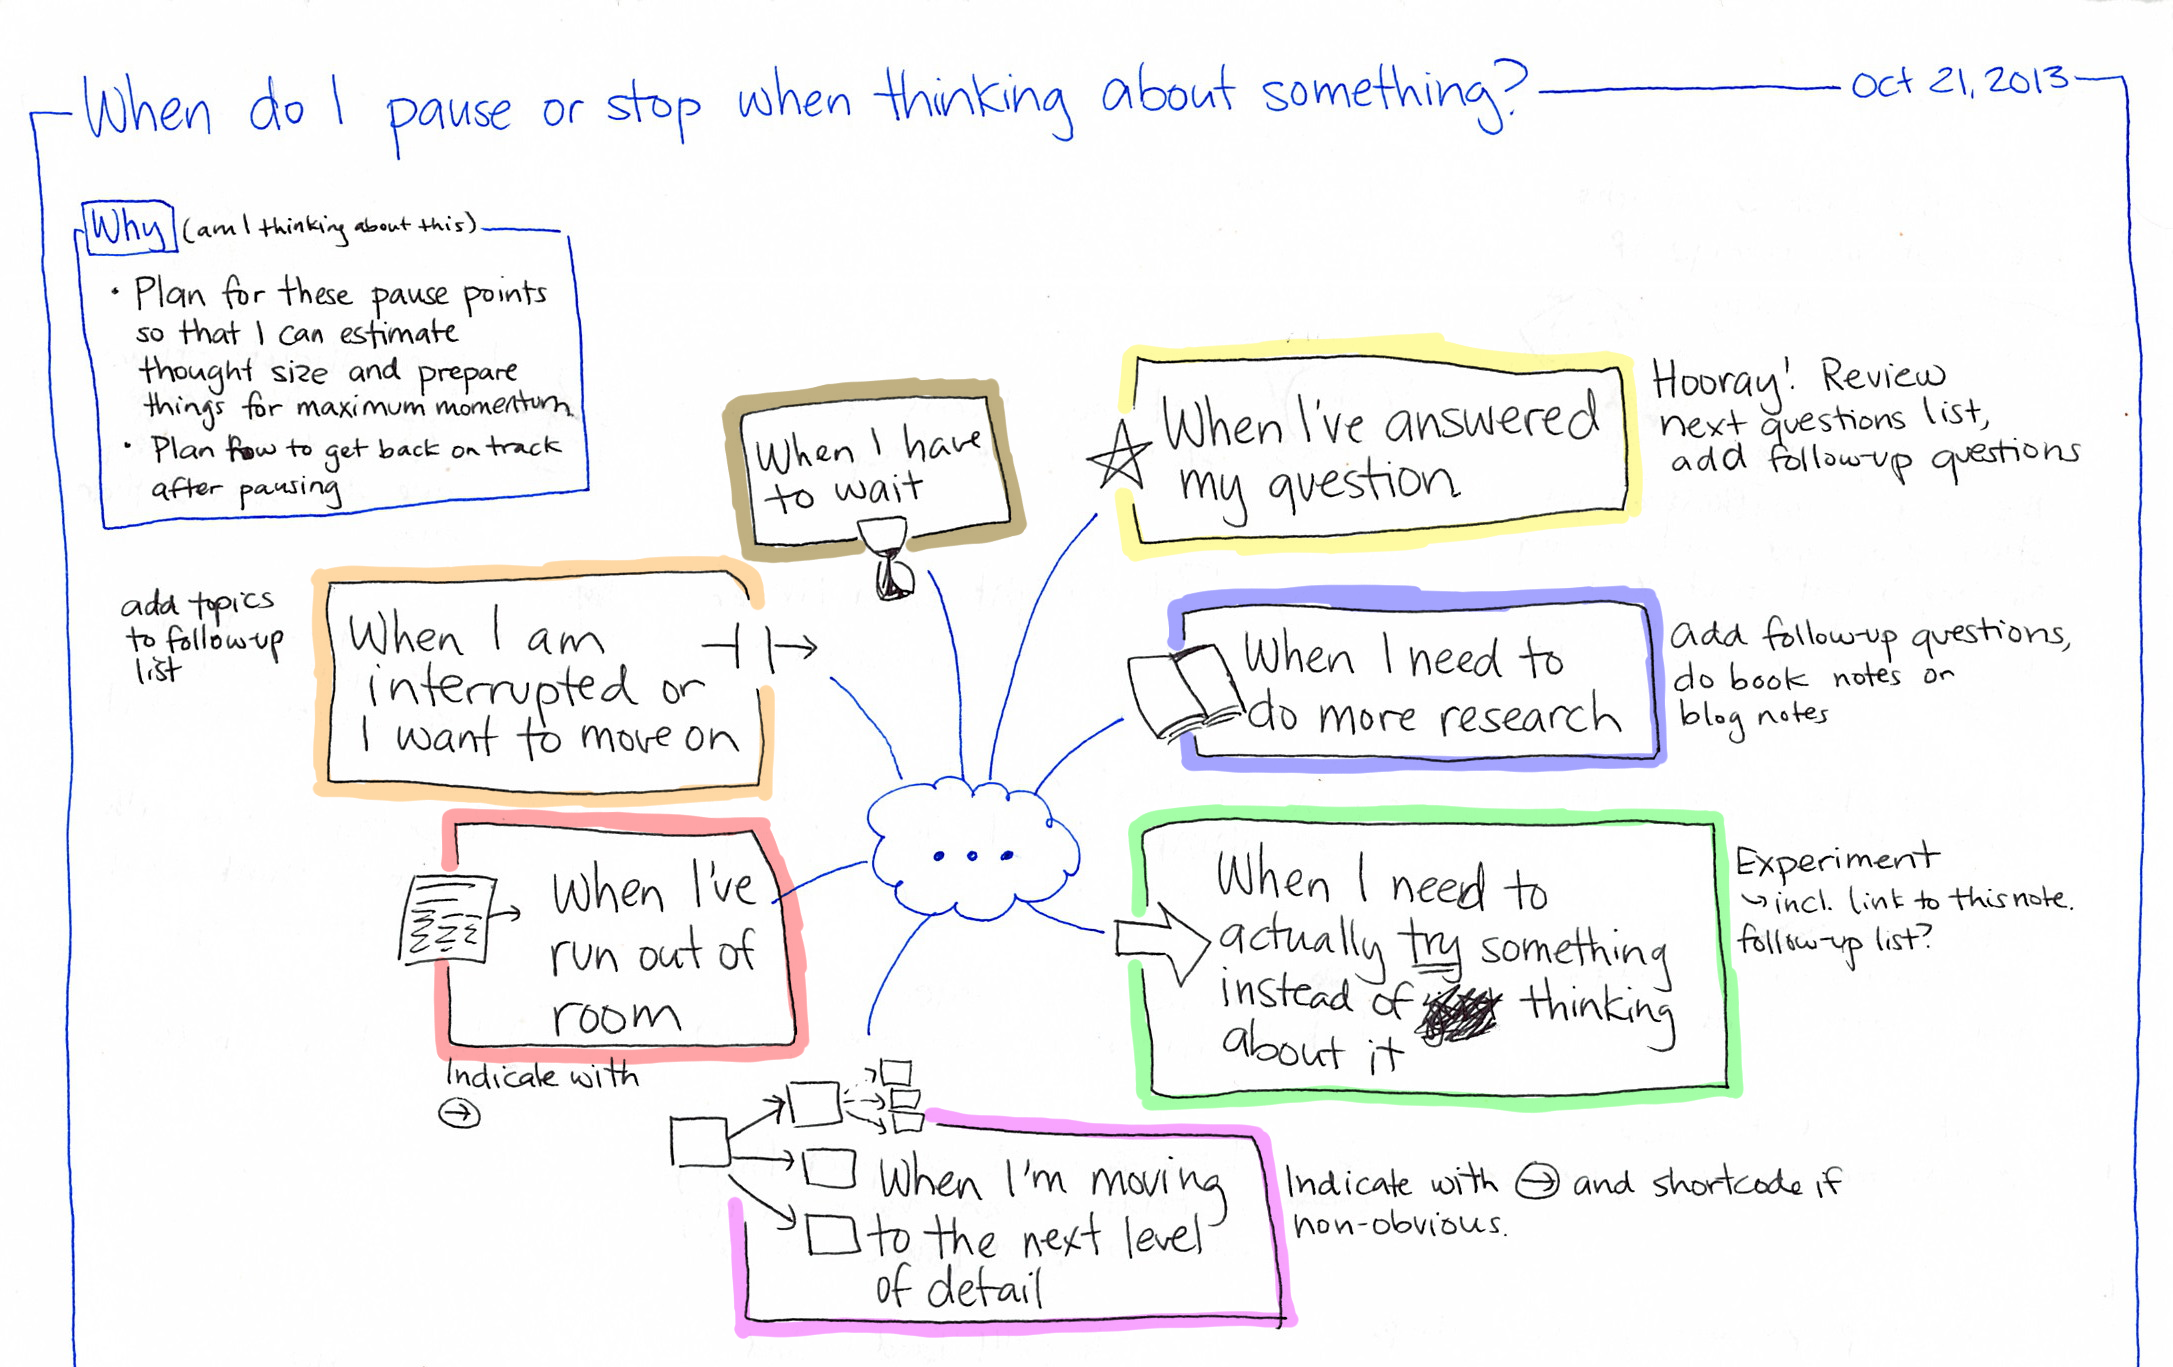 When do I pause or stop when thinking about something?
Oct 21, 2013
Why (am I thinking about this)
• Plan for these pause points
so that I can estimate
thought size and prepare
things for maximum momentum
• Plan how to get back on track
after pausing
When I have
to wait
When I've answered
my question
Hooray! Review
next questions list,
add follow-up questions
add topics
to follow-up
list
When I am
interrupted or
I want to move on
When I need to
do more research
add follow-up questions,
do book notes or
blog notes
When I've
run out of
room
Indicate with
→
When I need to
actually try something
instead of thinking
about it
Experiment
↳ incl. link to this note.
follow-up list?
When I'm moving
to the next level
of detail
Indicate with → and shortcode if
non-obvious.